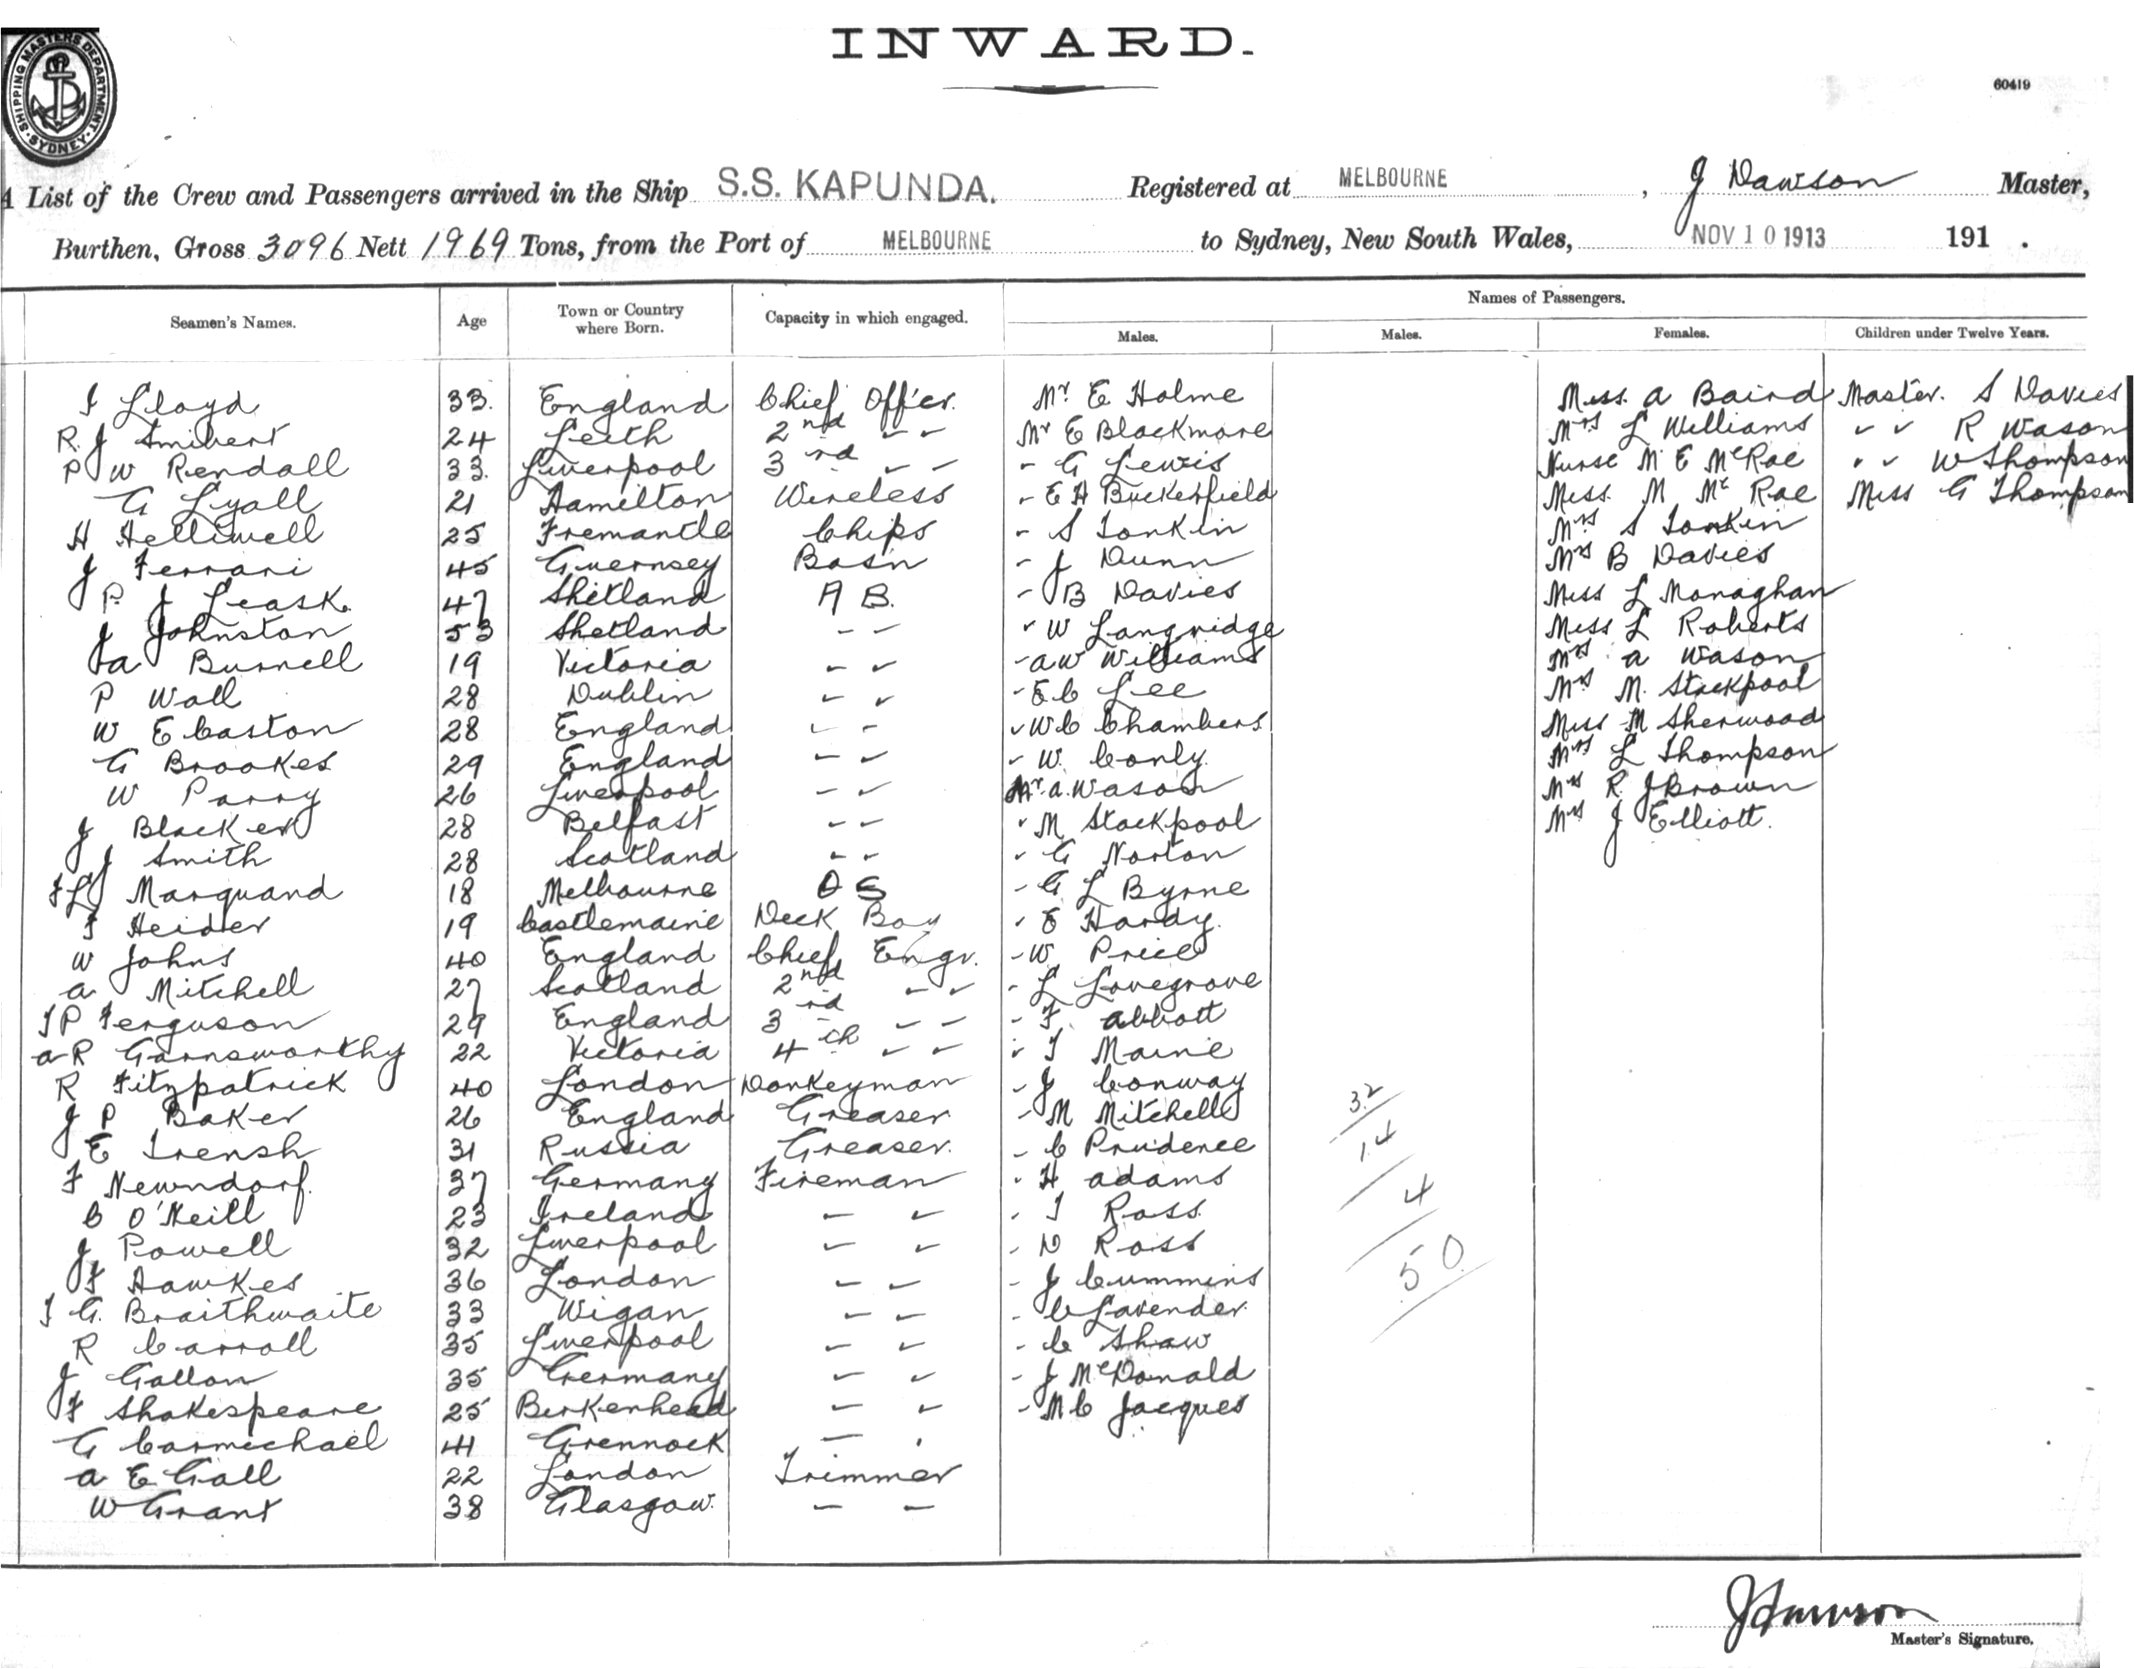 SHIPPING MASTERS DEPARTMENT · SYDNEY ·
INWARD.
60419
A List of the Crew and Passengers arrived in the Ship S.S. KAPUNDA. Registered at MELBOURNE, J Dawson Master,
Burthen, Gross 3096 Nett 1969 Tons, from the Port of MELBOURNE to Sydney, New South Wales, NOV 10 1913 191 .
Names of Passengers.
Seamen's Names. Age Town or Country where Born. Capacity in which engaged. Males. Males. Females. Children under Twelve Years.
I Lloyd 33. England Chief Offcr. Mr. E Holme Miss. A Baird Master. S Davies
R. J Smibert 24 Leith 2nd " " Mr E Blackmore Mrs L Williams " " R Wason
P W Rendall 33. Liverpool 3rd " " " G Lewis Nurse M E McRae " " W Thompson
G Lyall 21 Hamilton Wireless " E H Buckerfield Miss. M McRae Miss G Thompson
H Helliwell 25 Fremantle Chips " S Tonkin Mrs S Tonkin
J Ferrari 45 Guernsey Bosn " J Dunn Mrs B Davies
P. J Leask. 47 Shetland A B. " B Davies Miss L Monaghan
J Johnston 53 Shetland " " " W Langridge Miss L Roberts
A Burnell 19 Victoria " " " A W Williams Mrs A Wason
P Wall 28 Dublin " " " E C Lee Mrs M. Stackpool
W E Caston 28 England " " " W C Chambers Miss M Sherwood
G Brookes 29 England " " " W. Conly. Mrs L Thompson
W Parry 26 Liverpool " " Mr. A. Wason Mrs R J Brown
J Blacker 28 Belfast " " " M Stackpool Mrs J Elliott.
J Smith 28 Scotland " " " G Norton
F L J Marquand 18 Melbourne O S " G L Byrne
F Heider 19 Castlemaine Deck Boy " E Hardy.
W Johns 40 England Chief Engr. " W Price
A Mitchell 27 Scotland 2nd " " " L Lovegrove
T P Ferguson 29 England 3rd " " " F. Abbott
A R Garnsworthy 22 Victoria 4th " " " T Maine
R Fitzpatrick 40 London Donkeyman " J Conway
J P Baker 26 England Greaser " M Mitchell 32
E Trensh 31 Russia Greaser. " C Prudence 14
F Newndorf. 37 Germany Fireman " H Adams 4
C O'Neill 23 Ireland " " " T Ross
J Powell 32 Liverpool " " " D Ross 50
F Hawkes 36 London " " " J Cummins
T G. Braithwaite 33 Wigan " " " C Lavender
R Carroll 35 Liverpool " " " C Shaw
J Gallon 35 Germany " " " J McDonald
F Shakespeare 25 Birkenhead " " " M C Jacques
G Carmichael 41 Grennock " "
A E Gall 22 London Trimmer
W Grant 38 Glasgow. " "
J Dawson
Master's Signature.